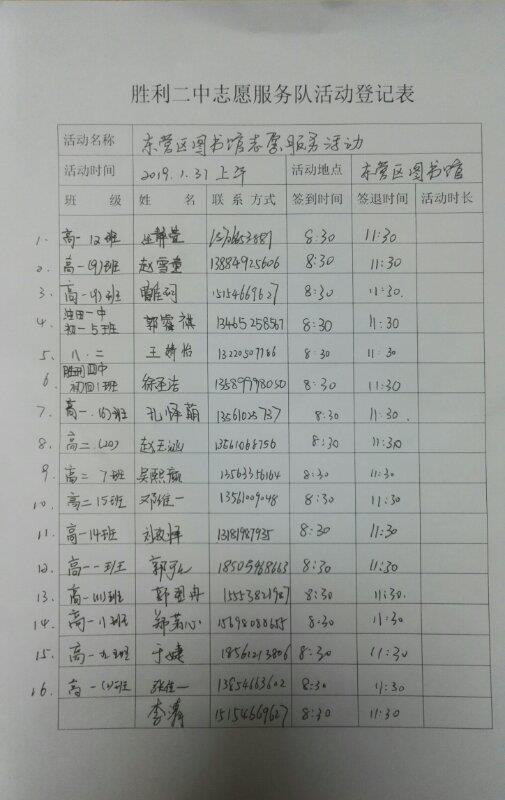 胜利二中志愿服务队活动登记表
活动名称 东营区图书馆志愿服务活动
活动时间 2019.1.31上午 活动地点 东营区图书馆
班 级 姓 名 联系方式 签到时间 签退时间 活动时长
1. 高一12班 8:30 11:30
2. 高一(9)班 赵雪童 13884925606 8:30 11:30
3. 高一(9)班 15154669627 8:30 11:30.
4. 油田一中 初一5班 郭睿祺 13465258567 8:30 11:30
5. 八.二 王婧怡 13220507786 8:30 11:30
6. 胜利四中 初四1班 徐圣洁 13589998050 8:30 11:30
7. 高一.(6)班 孔怿萌 8:30 11:30.
8. 高二.(20) 赵玉冰 13561068756 8:30 11:30
9. 高二7班 吴熙颜 13563356164 8:30 11:30
10. 高二15班 邓佳一 13561009048 8:30 11:30
11. 高一14班 刘政怿 13181987935 8:30 11:30
12. 高一一班 郭可心 18505968663 8:30 11:30
13. 高一(11)班 15553821987 8:30 11:30.
14. 高一11班 郑茗心 15698088655 8:30 11:30
15. 高一九班 于婕 18561213806 8:30 11:30
16. 高一(11)班 张佳一 13854663602 8:30 11:30
李涛 15154669627 8:30 11:30